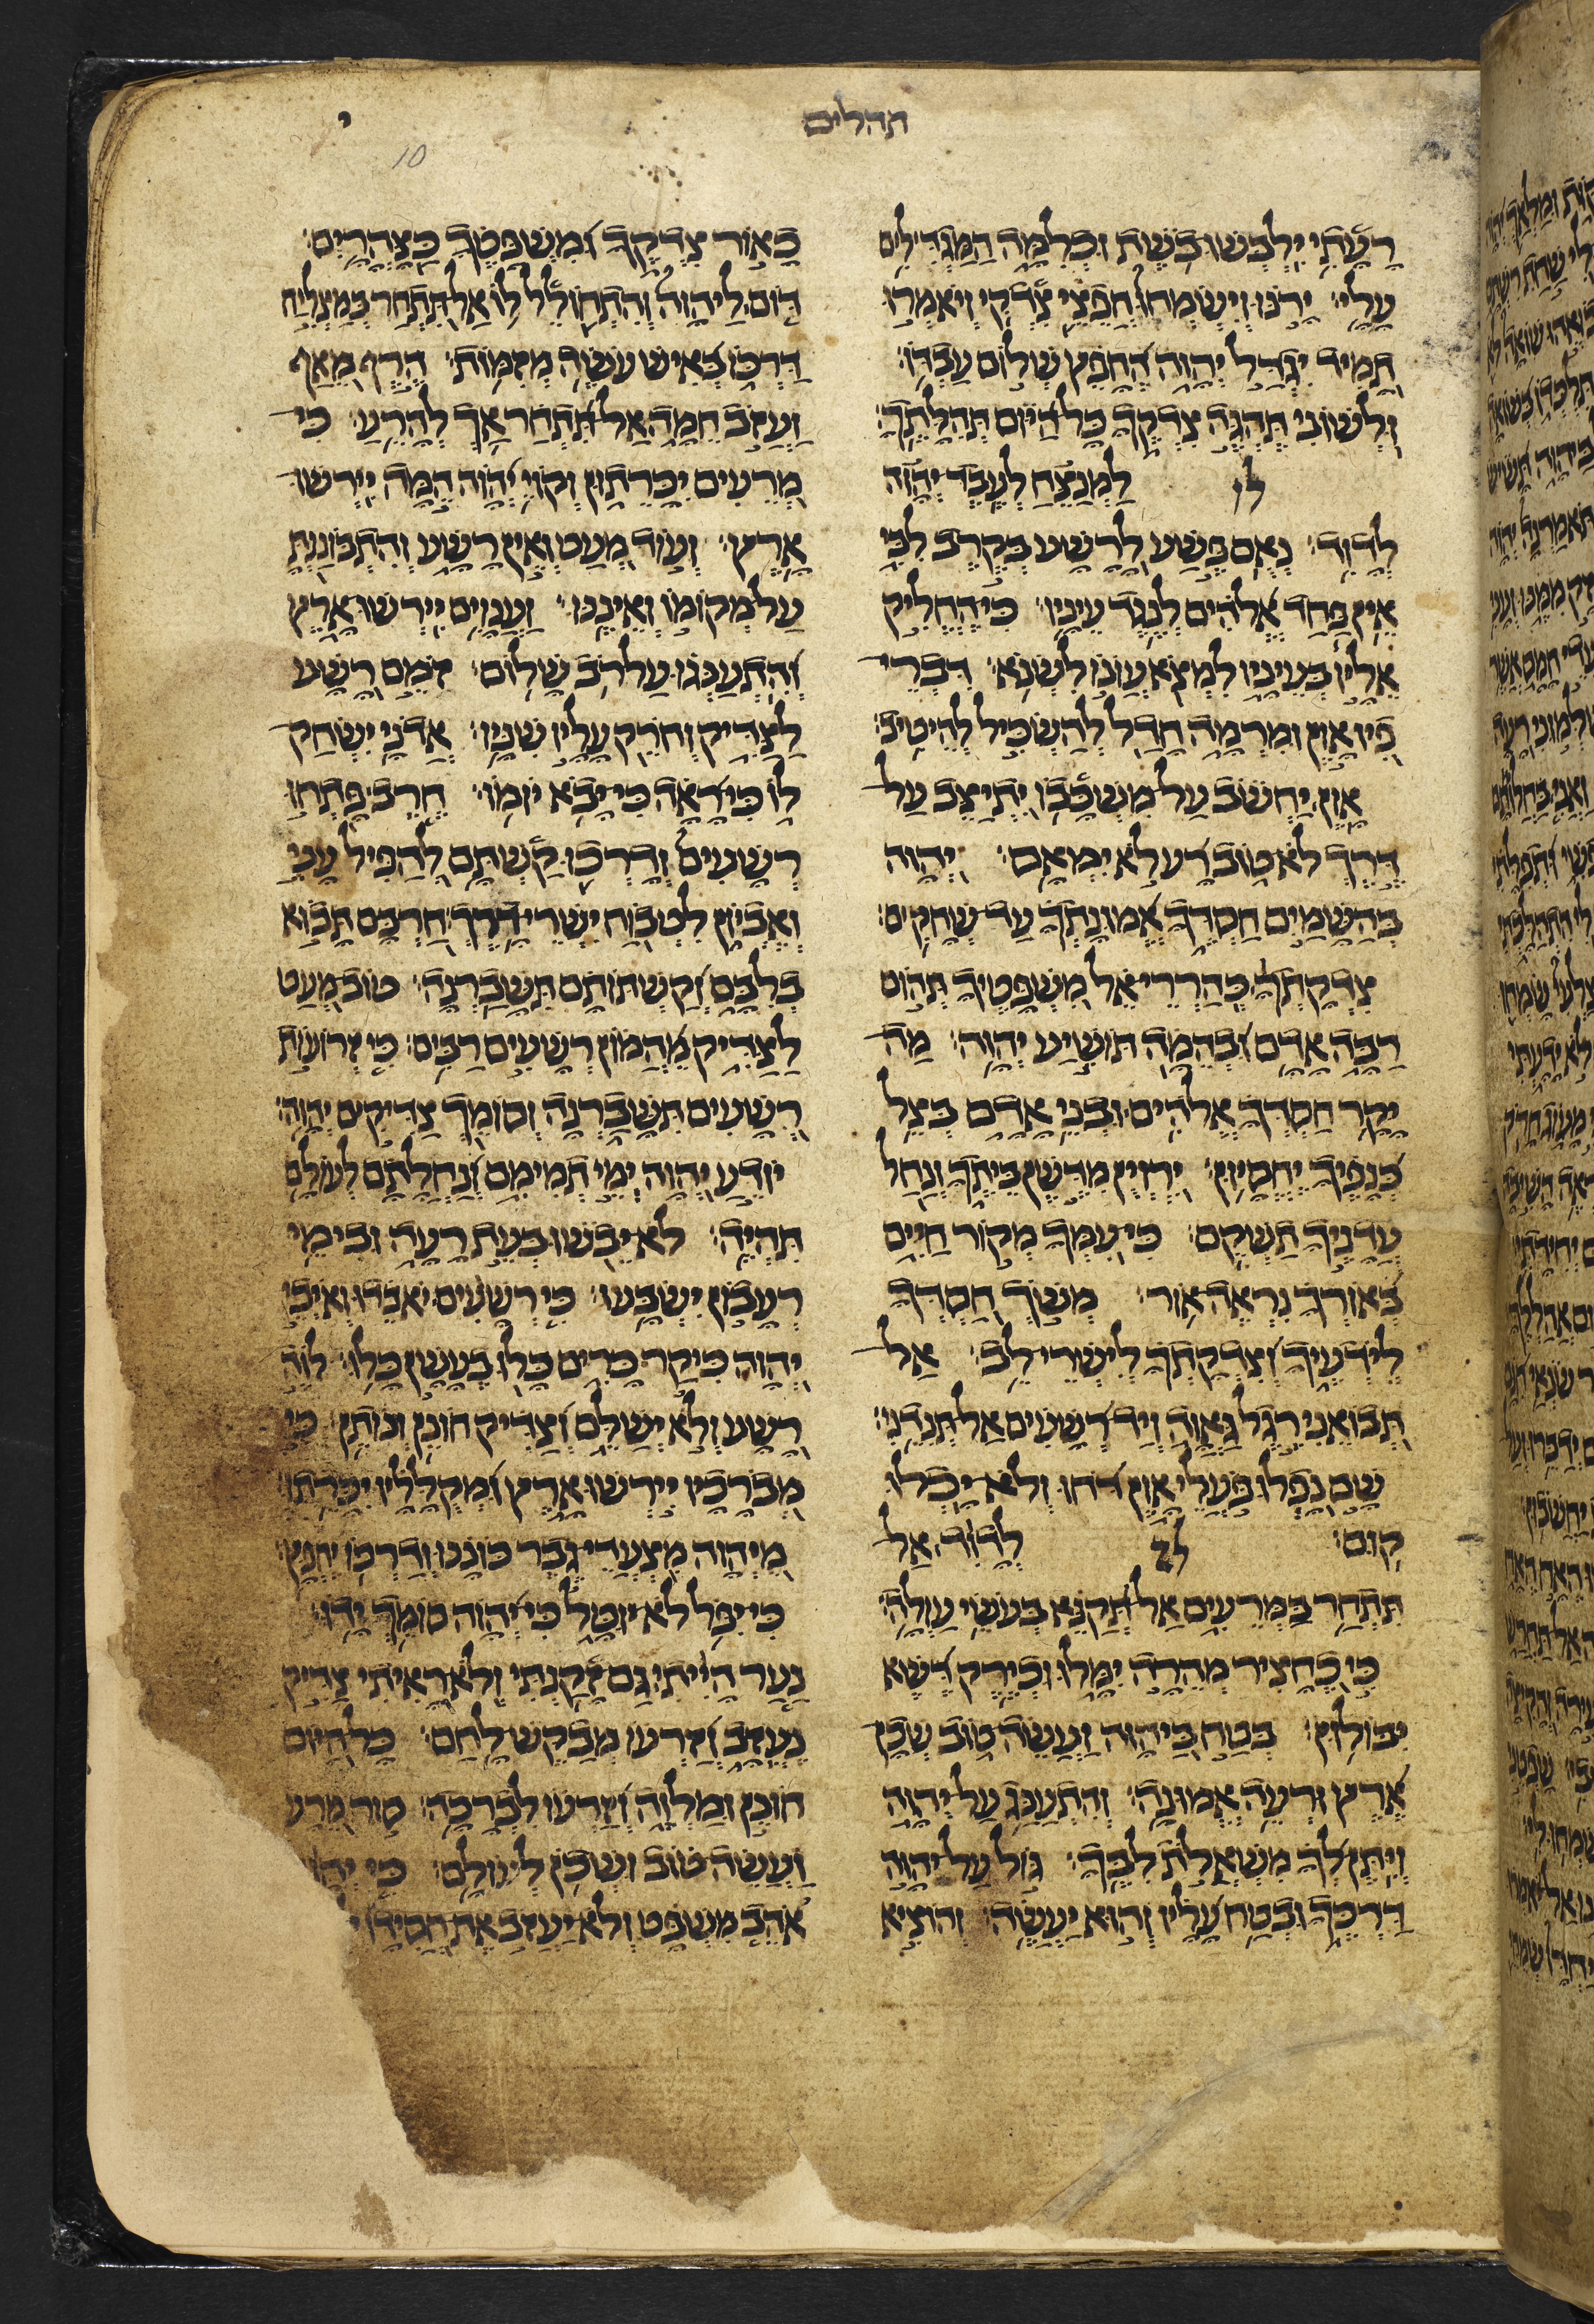 תהלים
י
10
רעתי ילבשו בשת וכלמה המגדילים
עלי׃ ירנו וישמחו חפצי צדקי ויאמרו
תמיד יגדל יהוה החפץ שלום עבדו׃
ולשוני תהגה צדקך כל היום תהלתך׃
לו למנצח לעבד יהוה
לדוד׃ נאם פשע לרשע בקרב לבי
אין פחד אלהים לנגד עיניו׃ כי החליק
אליו בעיניו למצא עונו לשנא׃ דברי
פיו און ומרמה חדל להשכיל להיטיב׃
און יחשב על משכבו יתיצב על
דרך לא טוב רע לא ימאס׃ יהוה
בהשמים חסדך אמונתך עד שחקים׃
צדקתך כהררי אל משפטיך תהום
רבה אדם ובהמה תושיע יהוה׃ מה
יקר חסדך אלהים ובני אדם בצל
כנפיך יחסיון׃ ירוין מדשן ביתך ונחל
עדניך תשקם׃ כי עמך מקור חיים
באורך נראה אור׃ משך חסדך
לידעיך וצדקתך לישרי לב׃ אל
תבואני רגל גאוה ויד רשעים אל תנדני׃
שם נפלו פעלי און דחו ולא יכלו
קום׃ לז לדוד אל
תתחר במרעים אל תקנא בעשי עולה׃
כי כחציר מהרה ימלו וכירק דשא
יבולון׃ בטח ביהוה ועשה טוב שכן
ארץ ורעה אמונה׃ והתענג על יהוה
ויתן לך משאלת לבך׃ גול על יהוה
דרכך ובטח עליו והוא יעשה׃ והוציא
כאור צדקך ומשפטך כצהרים׃
דום ליהוה והתחולל לו אל תתחר במצליח
דרכו באיש עשה מזמות׃ הרף מאף
ועזב חמה אל תתחר אך להרע׃ כי
מרעים יכרתון וקוי יהוה המה יירשו
ארץ׃ ועוד מעט ואין רשע והתבוננת
על מקומו ואיננו׃ וענוים יירשו ארץ
והתענגו על רב שלום׃ זמם רשע
לצדיק וחרק עליו שניו׃ אדני ישחק
לו כי ראה כי יבא יומו׃ חרב פתחו
רשעים ודרכו קשתם להפיל עני
ואביון לטבוח ישרי דרך׃ חרבם תבוא
בלבם וקשתותם תשברנה׃ טוב מעט
לצדיק מהמון רשעים רבים׃ כי זרועות
רשעים תשברנה וסומך צדיקים יהוה׃
יודע יהוה ימי תמימם ונחלתם לעולם
תהיה׃ לא יבשו בעת רעה ובימי
רעבון ישבעו׃ כי רשעים יאבדו ואיבי
יהוה כיקר כרים כלו בעשן כלו׃ לוה
רשע ולא ישלם וצדיק חונן ונותן׃ כי
מברכיו יירשו ארץ ומקלליו יכרתו׃
מיהוה מצעדי גבר כוננו ודרכו יחפץ׃
כי יפל לא יוטל כי יהוה סומך ידו׃
נער הייתי גם זקנתי ולא ראיתי צדיק
נעזב וזרעו מבקש לחם׃ כל היום
חונן ומלוה וזרעו לברכה׃ סור מרע
ועשה טוב ושכן לעולם׃ כי יה
אהב משפט ולא יעזב את חסידיו